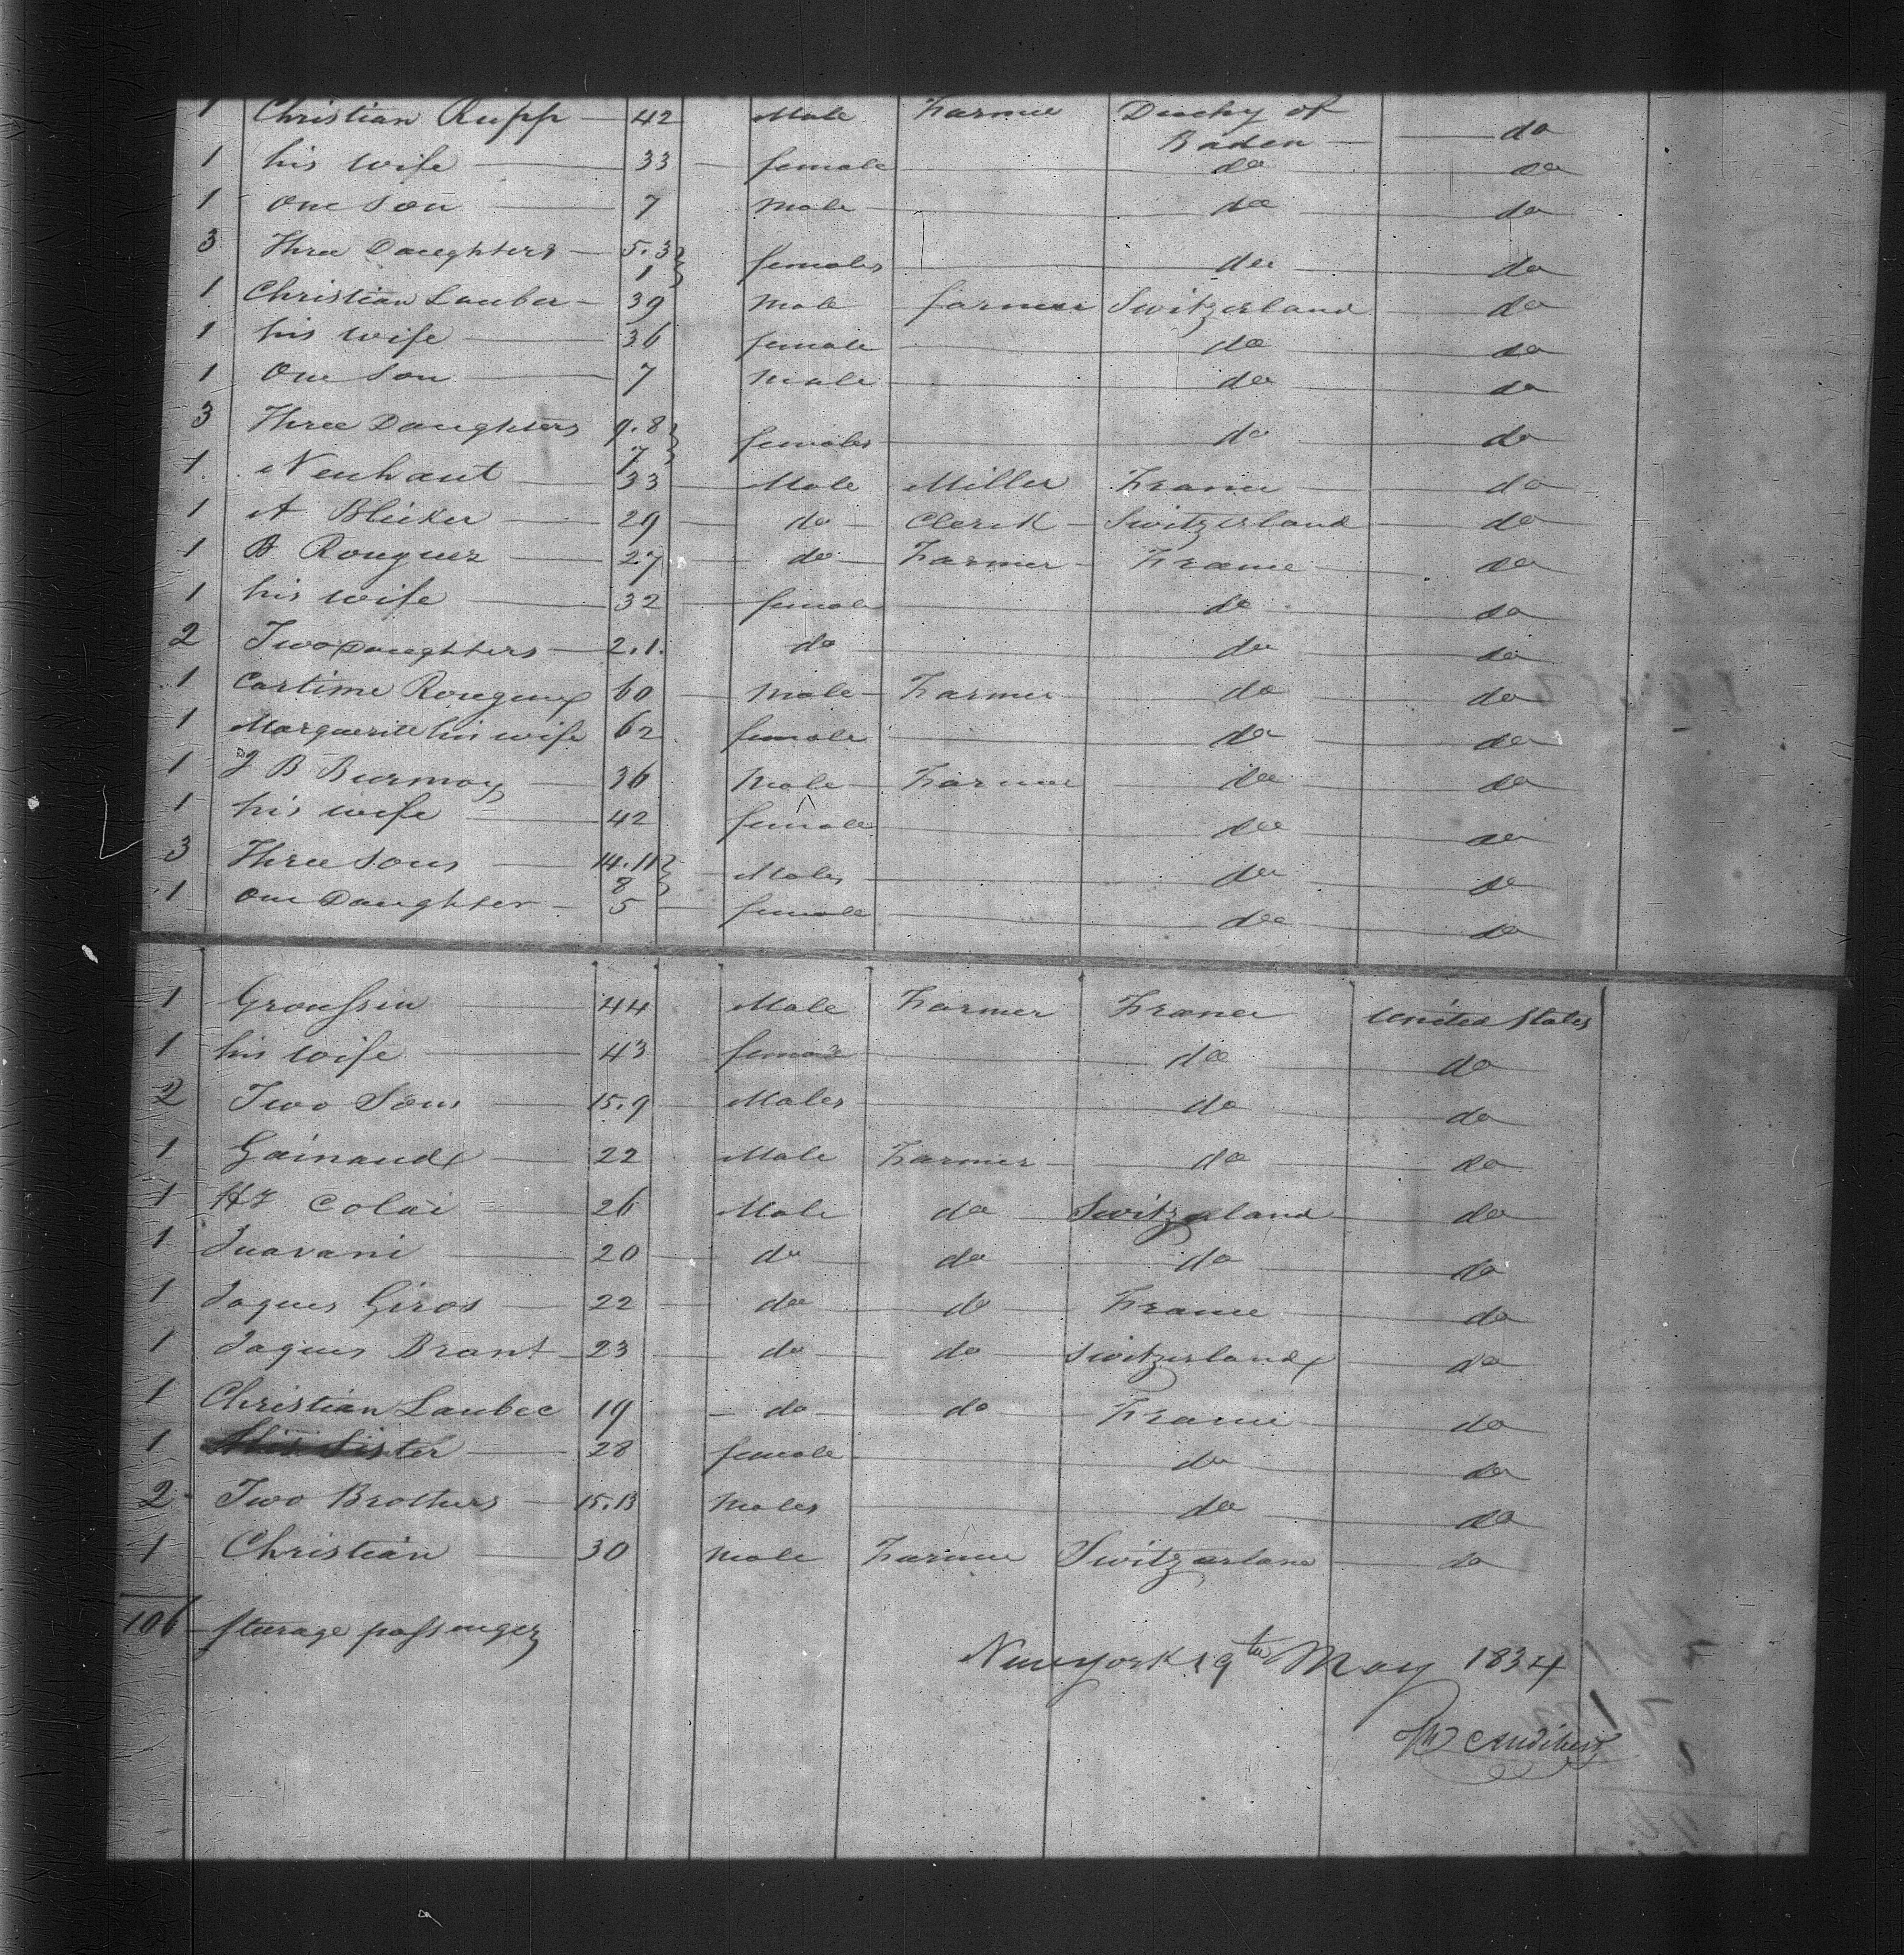 1 Christian Rupp 42 Male Farmer Duchy of
Baden do
1 his wife 33 female do do
1 One Son 7 Male do do
3 Three Daughters 5.3
1 females do do
1 Christian Lauber 39 Male farmer Switzerland do
1 his wife 36 female do do
1 One Son 7 Male do do
3 Three Daughters 9.8
7 females do do
1 Neuhaut 33 Male Miller France do
1 A Blicker 29 do Clerk Switzerland do
1 B Rouguez 27 do Farmer France do
1 his wife 32 female do do
2 Two Daughters 2.1. do do do
1 Castime Rougeux 60 Male Farmer do do
1 Marguerite his wife 62 female do do
1 J B Burmoy 36 Male Farmer do do
1 his wife 42 female do do
3 Three Sons 14.11
8 Males do do
1 One Daughter 5 female do do
1 Groussin 44 Male Farmer France United States
1 his wife 43 female do do
2 Two Sons 15.9 Males do do
1 Gainaud 22 Male Farmer do do
1 Colai 26 Male do Switzerland do
1 Juavani 20 do do do do
1 Jaques Giros 22 do do France do
1 Jaques Brant 23 do do Switzerland do
1 Christian Laubec 19 do do France do
1 Sister 28 female do do
2 Two Brothers 15.13 Males do do
1 Christian 30 Male Farmer Switzerland do
106 Sturage passenger
New York 19th May 1834